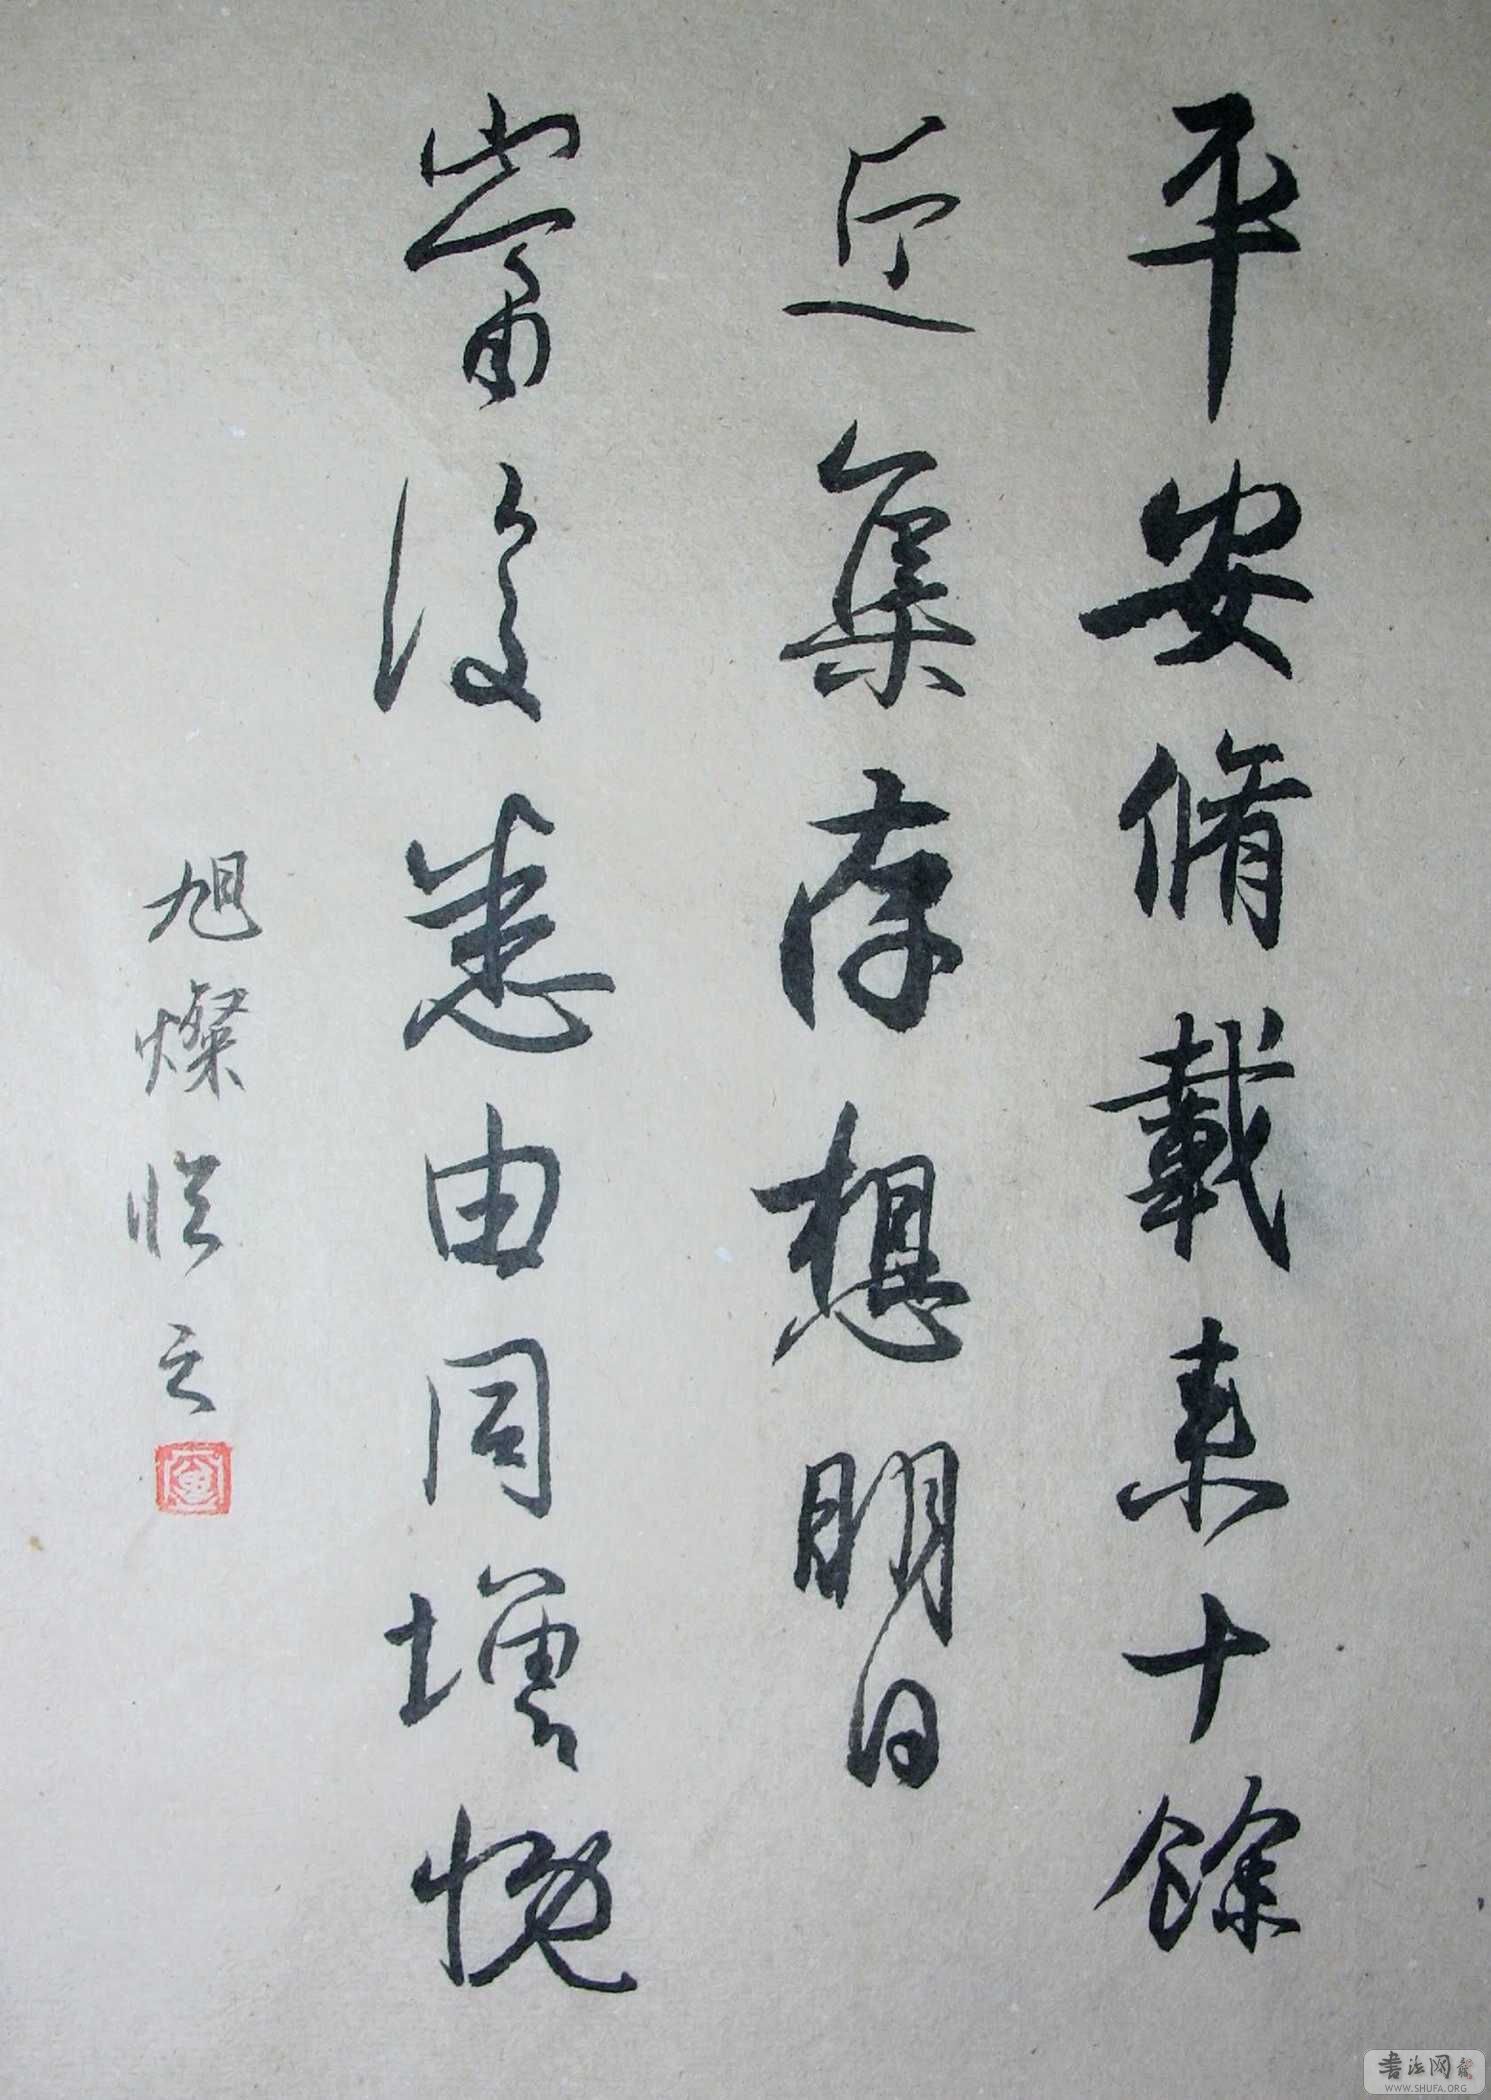 平安脩載来十餘
近集存想明日
當復悉由同增慨
旭燦临之
書法网
WWW.SHUFA.ORG